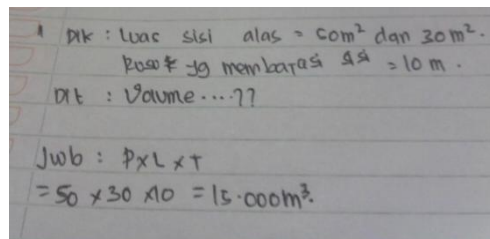 1 Dik : Luas sisi alas = 50m² dan 30m².
Rusuk yg membatasi sisi = 10 m.
Dit : Volume....??
Jwb : P x L x T
= 50 x 30 x 10 = 15.000m³.